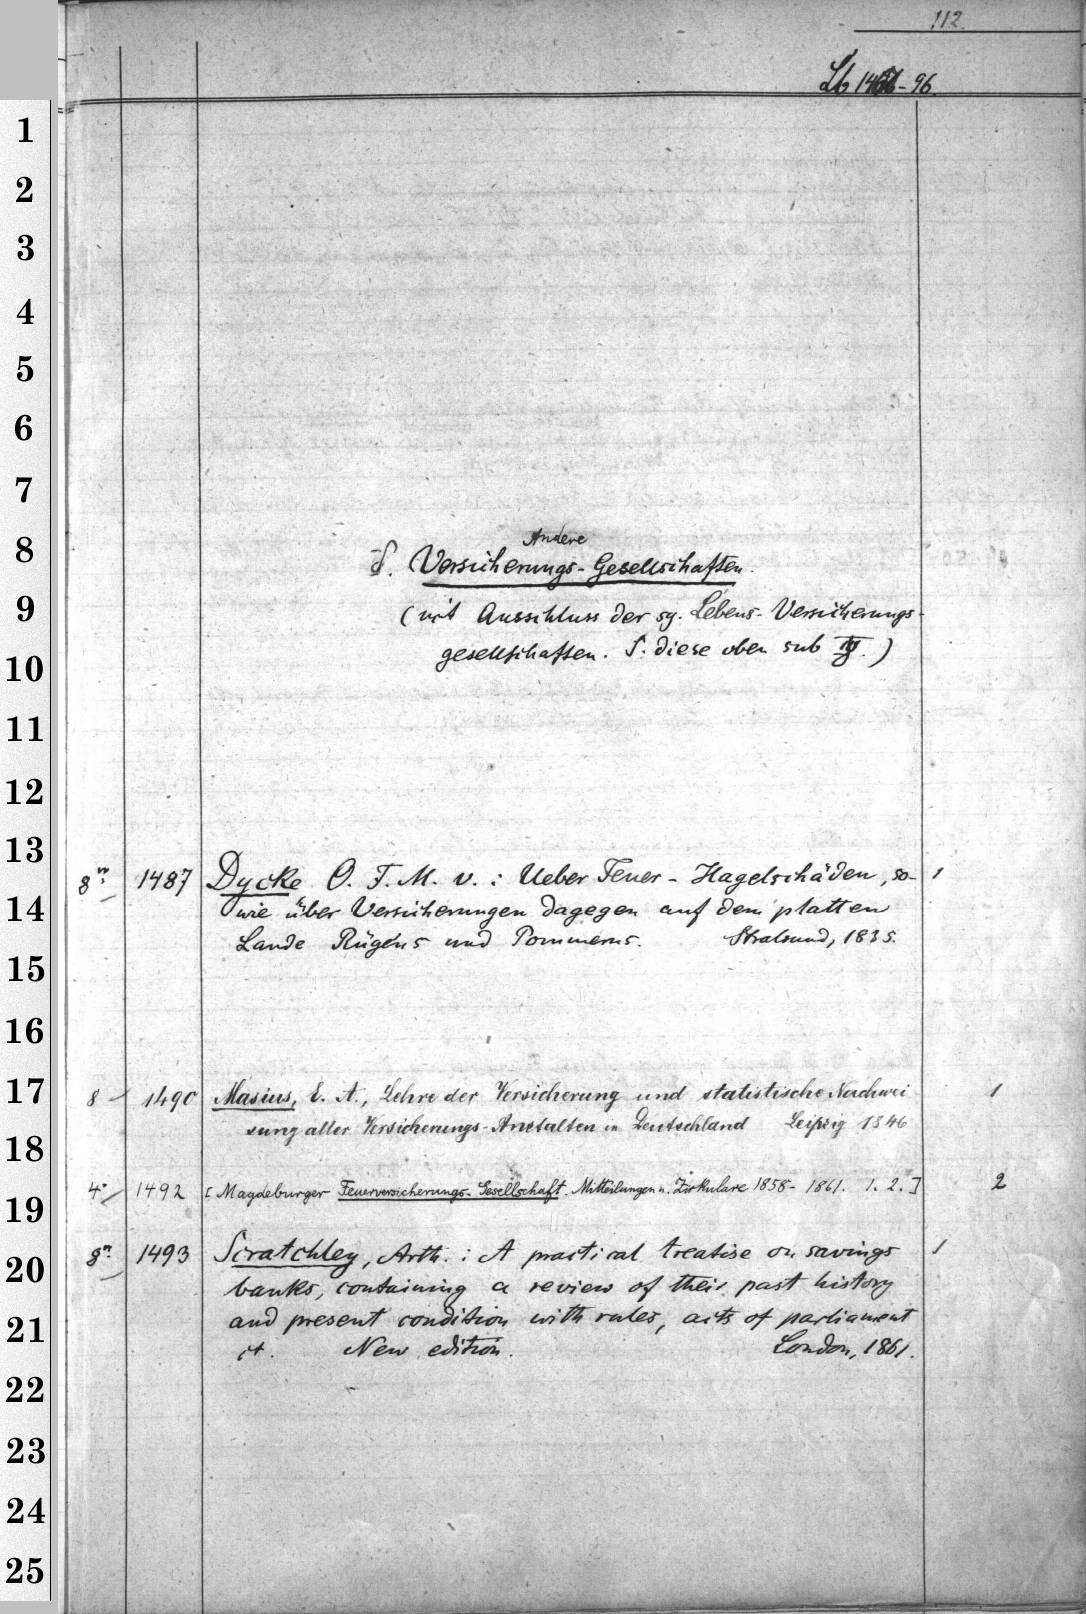 112.
Lb 14 - 96.
1
2
3
4
5
6
7
8
Andere
δ. Versicherungs-Gesellschaften.
9
(mit Ausschluss der sg. Lebens-Versicherungs-
10
gesellschaften. S. diese oben sub .)
11
12
13
8° 1487 Dycke O. F. M. v. : Ueber Feuer- Hagelschäden, so- 1
14
wie über Versicherungen dagegen auf dem platten
Lande Rügens und Pommerns. Stralsund, 1835.
15
16
17
8 1490 Masius, E. A., Lehre der Versicherung und statistische Nachwei 1
sung aller Versicherungs-Anstalten in Deutschland Leipzig 1846
18
4° 1492 [Magdeburger Feuerversicherungs-Gesellschaft. Mitteilungen u. Zirkulare 1858- 1861. 1. 2.] 2
19
8° 1493 Scratchley, Arth. : A practical treatise on savings 1
20
banks, containing a review of their past history
21
and present condition with rules, acts of parliament
ct. New edition. London, 1861.
22
23
24
25